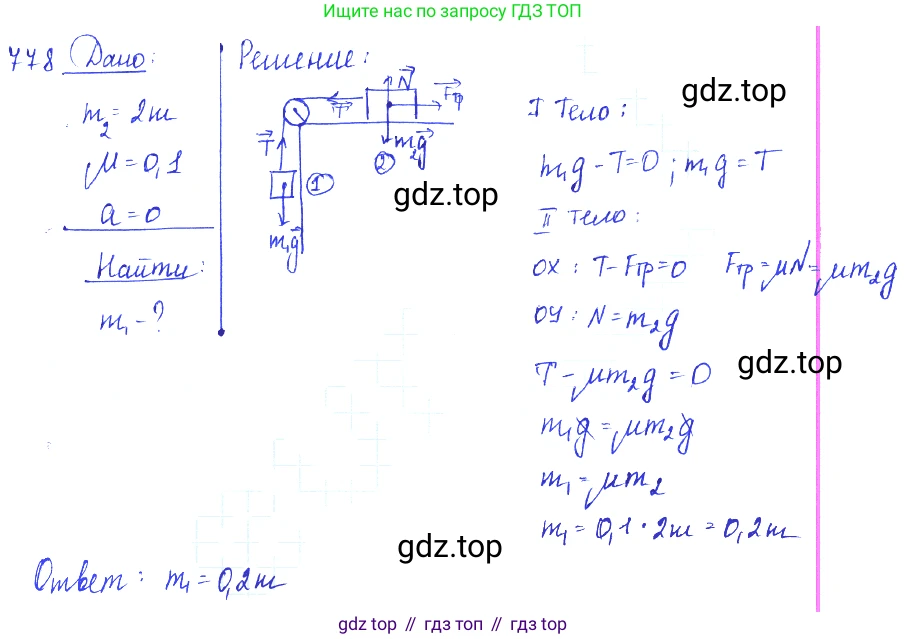 Ищите нас по запросу ГДЗ ТОП
778 Дано:
m₂ = 2m
μ = 0,1
a = 0
Найти:
m₁ - ?
Решение:
N
Fтр
T
m₂g
2
T
1
m₁g
gdz.top
gdz.top
I Тело:
m₁g - T = 0 ; m₁g = T
II Тело:
OX : T - Fтр = 0 Fтр = μN = μm₂g
OY : N = m₂g
T - μm₂g = 0
gdz.top
m₁g = μm₂g
m₁ = μm₂
m₁ = 0,1 · 2m = 0,2m
gdz.top
Ответ : m₁ = 0,2m
gdz top // гдз топ // gdz top